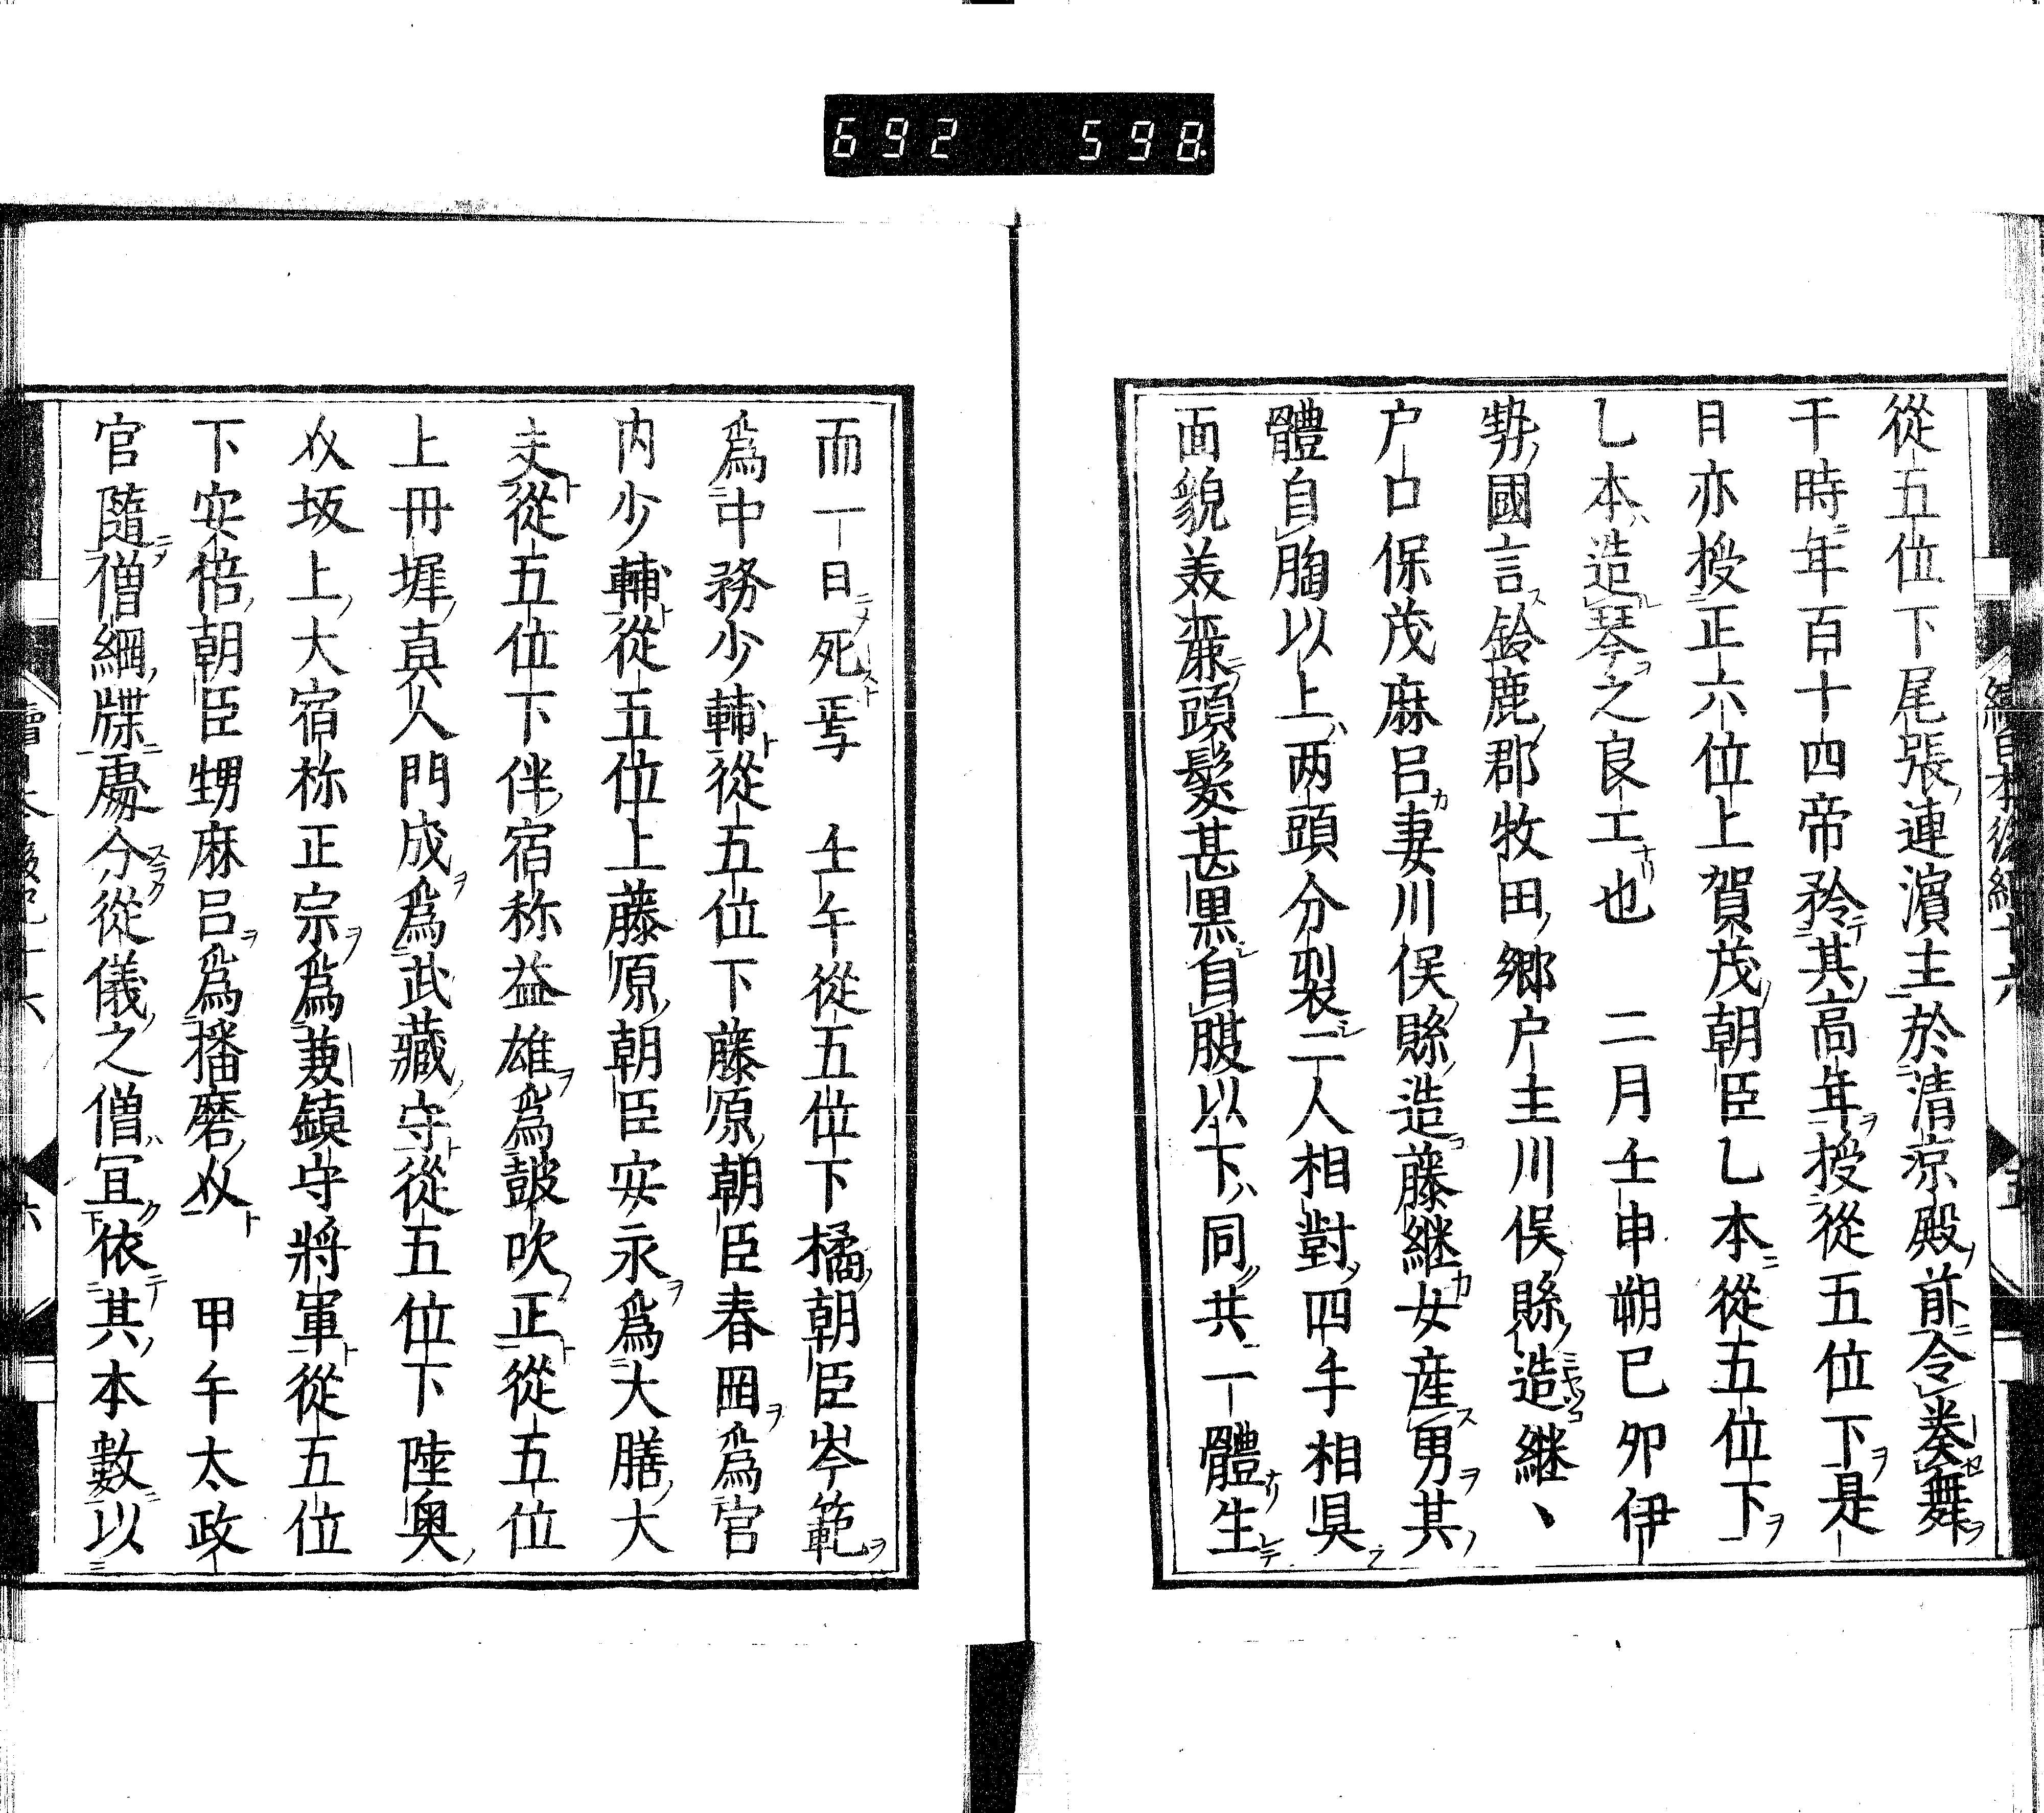 692 598
從五位下尾張連濵主於清凉殿前令奏舞
于時年百十四帝矜其高年授從五位下是
日亦授正六位上賀茂朝臣乙本從五位下
乙本造琴之良工也 二月壬申朔己夘伊
勢國言鈴鹿郡牧田郷户主川俣縣造継丶
户口保茂麻呂妻川俣縣造藤継女産男其
體自胸以上两頭分製二人相對四手相具
面貌美麗頭髮甚黒自腹以下同共一體生
而一日死焉 壬午從五位下橘朝臣岑範
爲中務少輔從五位下藤原朝臣春岡爲官
内少輔從五位上藤原朝臣安永爲大膳大
夫從五位下伴宿祢益雄爲皷吹正從五位
上丹墀真人門成爲武藏守從五位下陸奥
从坂上大宿祢正宗爲兼鎮守將軍從五位
下安倍朝臣甥麻呂爲播磨从 甲午太政
官隨僧綱牒處分從儀之僧宜依其本數以